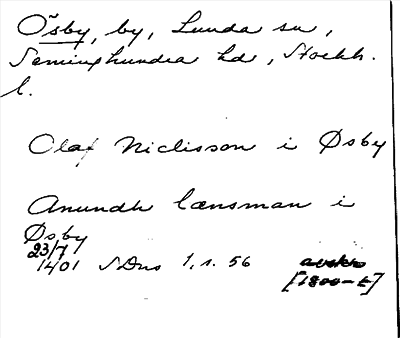 Ösby, by, Lunda sn,
Seminghundra hd, Stockh.
l.
Olaf Niclisson i Øsby
Anundh lænsman i
Øsby
23/7
1401 SDns 1, s. 56
[1800-t]